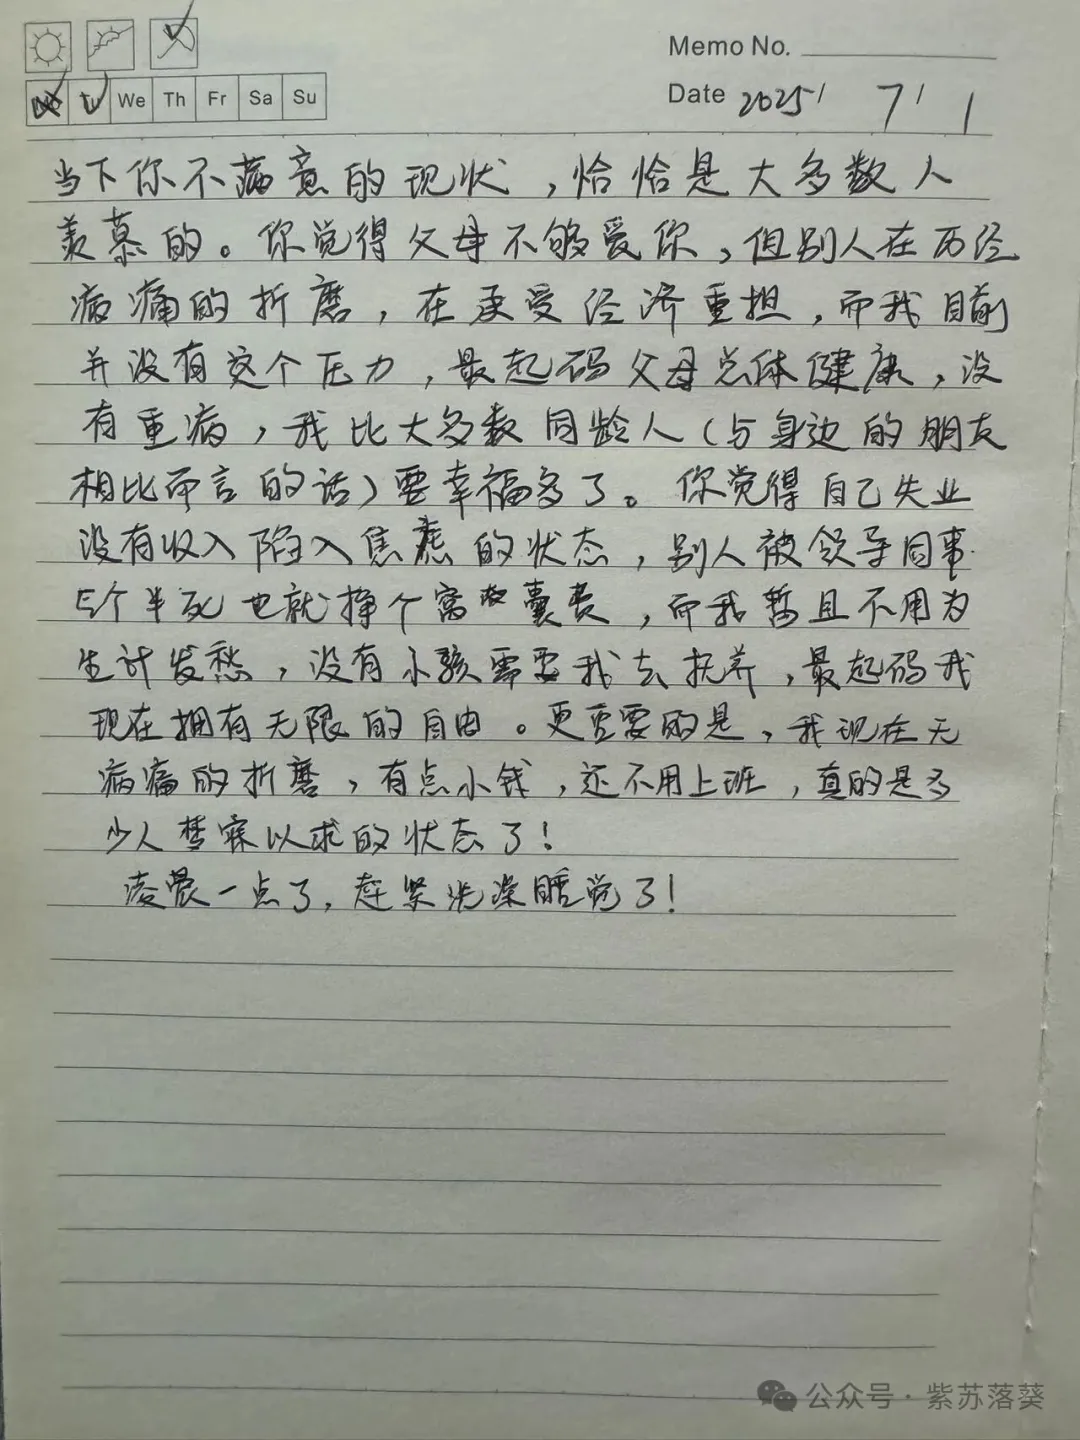 Memo No.
Mo Tu We Th Fr Sa Su
Date 2025/ 7/ 1
当下你不满意的现状，恰恰是大多数人
羡慕的。你觉得父母不够爱你，但别人在历经
病痛的折磨，在承受经济重担，而我目前
并没有这个压力，最起码父母总体健康，没
有重病，我比大多数同龄人（与身边的朋友
相比而言的话）要幸福多了。你觉得自己失业
没有收入陷入焦虑的状态，别人被领导同事
气个半死也就挣个窝囊费，而我暂且不用为
生计发愁，没有小孩需要我去抚养，最起码我
现在拥有无限的自由。更重要的是，我现在无
病痛的折磨，有点小钱，还不用上班，真的是多
少人梦寐以求的状态了！
凌晨一点了，赶紧洗澡睡觉了！
公众号·紫苏落葵